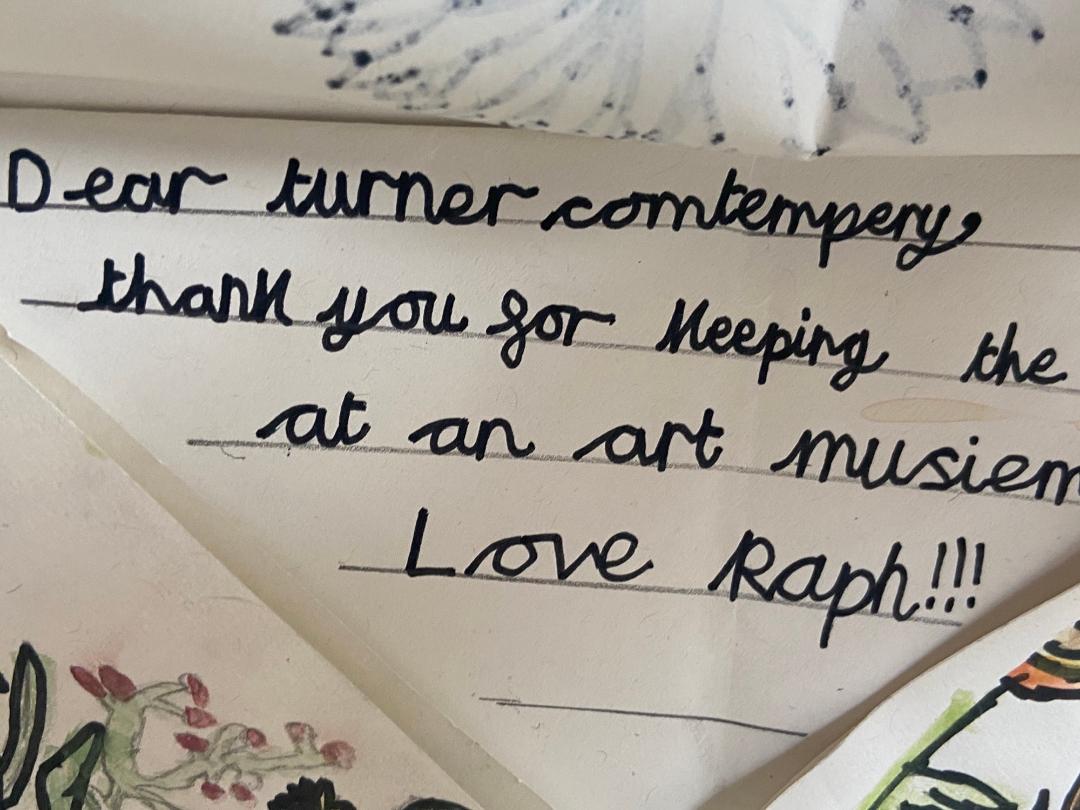 Dear turner comtempery,
thank you for Keeping the
at an art musiem
Love Raph!!!